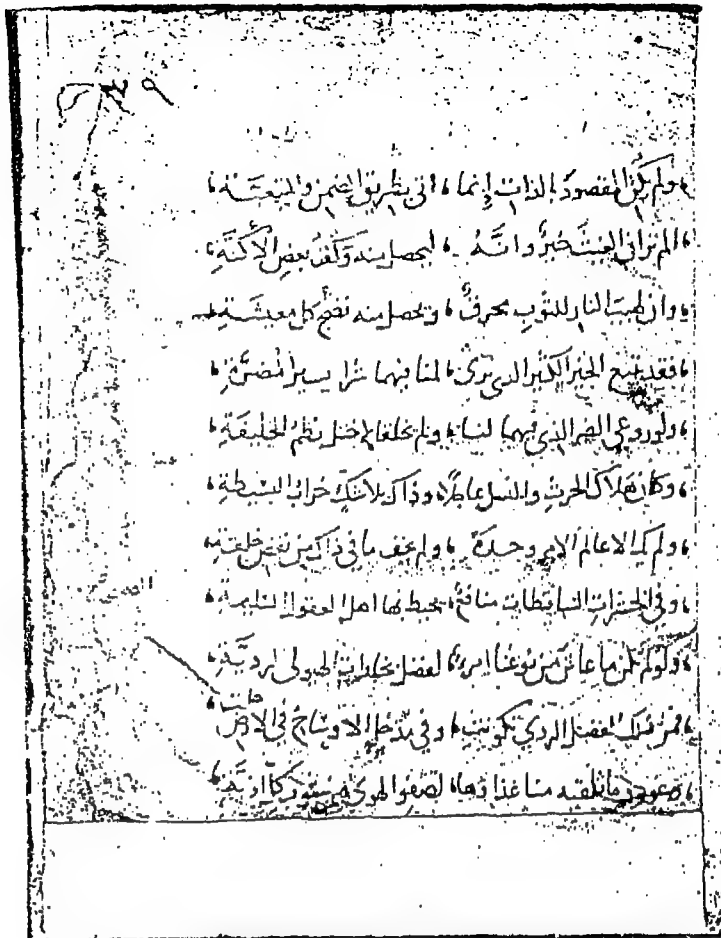 ٢٤٩
، ولم يكن المقصود بالذات إنما ، أتى بطريق الضمن والتبعية ،
، الم تر ان الغيث خير وانه ، ليحصل منه وكف بعض الأكنة ،
، وان طبيب النار للثوب محرق ، ويحصل منه نضج كل معيشة ،
، فقد تبع الخير الكثير الذي ترى ، لنا فيهما شرا يسير المضرة ،
، ولو روعي الضر الذي فيهما لنا ، ولم يخلقا لاختل نظم الخليقة ،
، وكان هلاك الحرث والنسل عاجلا ، وذاك بلا شك خراب البسيطة ،
، ولم يك الا عالم الامر وحده ، ولم يخف ما في ذاك من نقص خلقة ،
، وفي الحشرات الساقطات منافع ، يحيط بها اهل العقول السليمة ،
، ولو لم تكن ما عاش من نوعنا امرء ، لفضل الهيولى الردية ،
، فمن ذلك الفضل الردي تكونت ، وفي مدخل الاوساخ في الارض حلت ،
، منا غذاؤها ، لصفو الهوى من كل ،